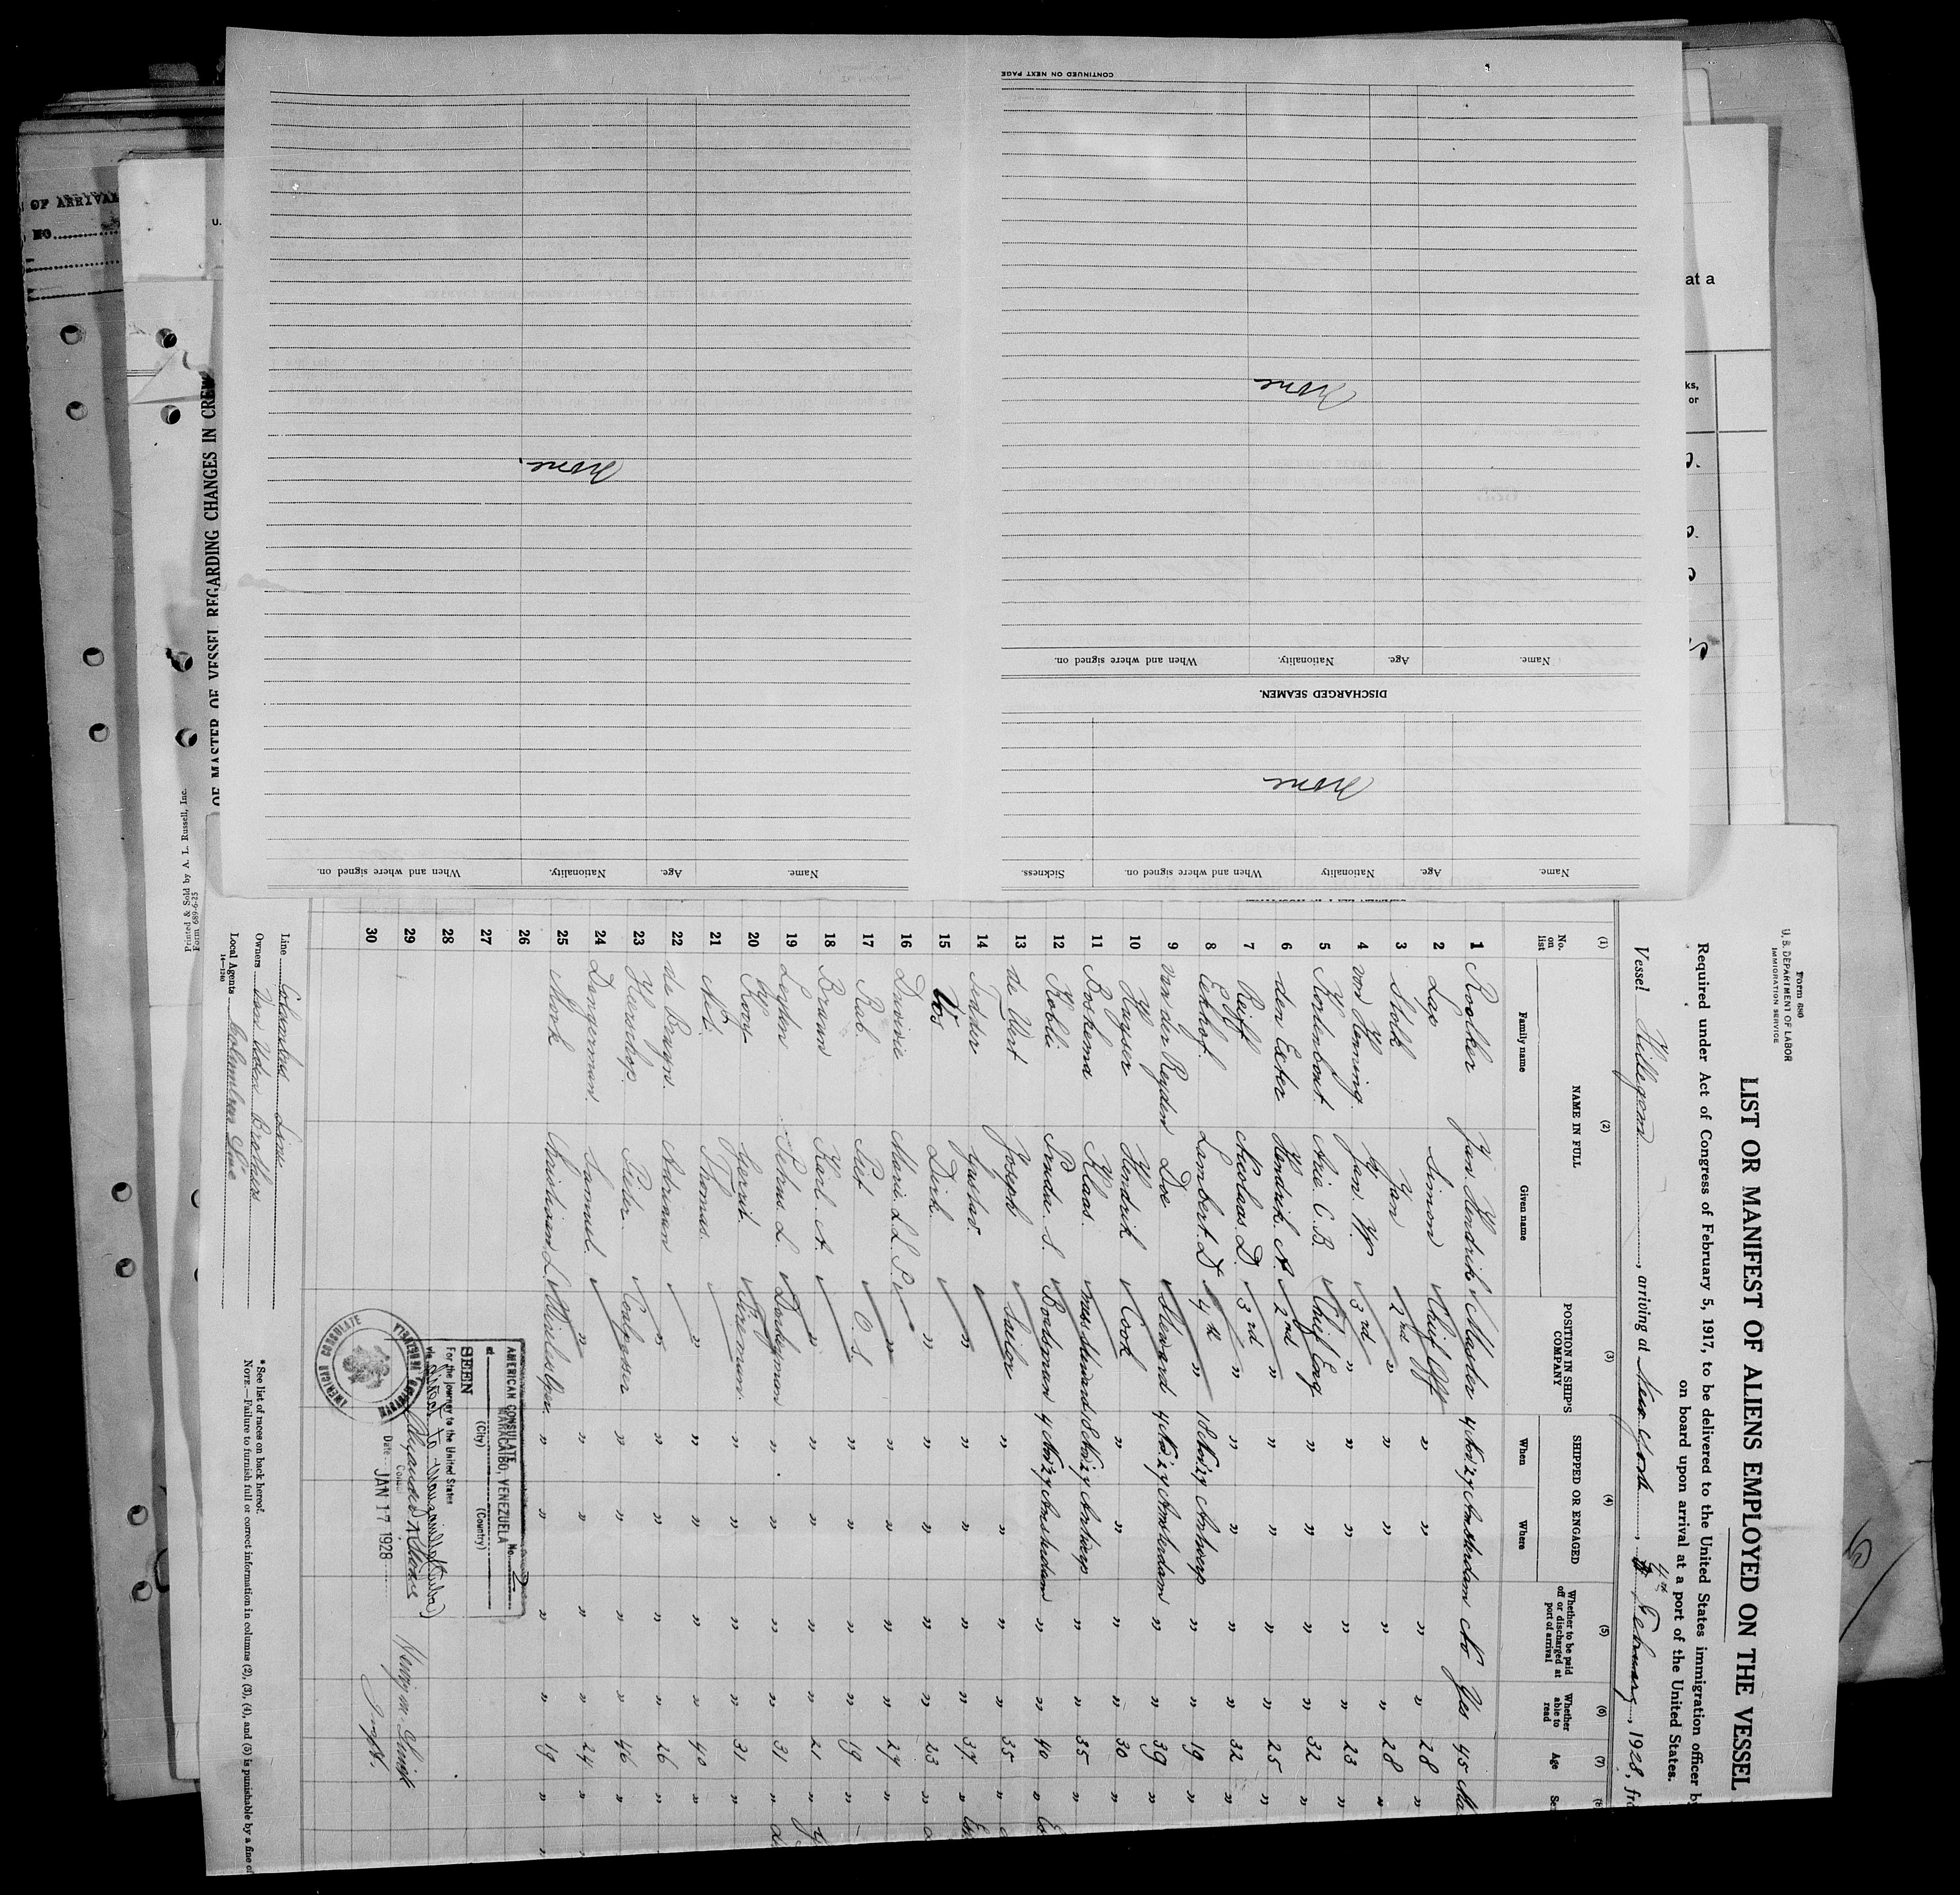 CONTINUED ON NEXT PAGE
None
None
Name.
Age.
Nationality.
When and where signed on.
DISCHARGED SEAMEN.
None
Name.
Age.
Nationality.
When and where signed on.
Sickness.
Name.
Age.
Nationality.
When and where signed on.
OF ARRIVAL
NO
U.
at a
ks,
or
OF MASTER OF VESSEL REGARDING CHANGES IN CREW
Printed & Sold by A. L. Russell, Inc.
Form 689-6-25
Form 680
U. S. DEPARTMENT OF LABOR
IMMIGRATION SERVICE
LIST OR MANIFEST OF ALIENS EMPLOYED ON THE VESSEL
Required under Act of Congress of February 5, 1917, to be delivered to the United States immigration officer by
on board upon arrival at a port of the United States.
Vessel Hillegom, arriving at New York, 4th February, 1928, fro
(1) (2) (3) (4) (5) (6) (7)
No. on list NAME IN FULL POSITION IN SHIP'S COMPANY SHIPPED OR ENGAGED Whether to be paid off or discharged at port of arrival Whether able to read Age
Family name Given name When Where
1 Rooker Jan Hendrik Master 4 Nov 27 Amsterdam No Yes 45 Ma
2 Lap Simon Chief Off " " " " 28 "
3 Stolk Jan 2nd " " " " " 28 "
4 von Henning Jan W. 3rd " " " " " 23 "
5 Kortenbout Arie C. B. Chief Eng " " " " 32 "
6 den Exter Hendrik A. 2nd " " " " " 25 "
7 Reiff Nicolaas D. 3rd " " " " " 32 "
8 Eekhof Lambert D. 4th " 18 Nov 27 Antwerp " " 19 "
9 van der Reyden Doe Steward 4 Nov 27 Amsterdam " " 39 "
10 Kayser Hendrik Cook " " " " 30 "
11 Boskema Klaas mess steward 18 Nov 27 Antwerp " " 35 "
12 Bobli Pendu S. Boatsman 4 Nov 27 Amsterdam " " 40 " Es
13 de Wert Joseph Sailor " " " " 35 "
14 Tedder Gustav " " " " " 37 " Es
15 Vos Dirk " " " " " 23 "
16 Duvivié Maris L. P. " " " " " 27 "
17 Rab Piet O. S. " " " " 19 "
18 Bruun Karl A. " " " " " 21 "
19 Leyden Petrus L. Donkeyman " " " " 31 "
20 Rooy Gerrit Fireman " " " " 31 "
21 Not Thomas " " " " " 40 "
22 de Bruyn Adriaan " " " " " 26 "
23 Heerschop Pieter Coalpasser " " " " 46 "
24 Dangerman Samuel " " " " " 24 "
25 Mork Christiaan L. Wireless Oper. " " " " 19 "
26
27
28
29
30
AMERICAN CONSULATE
MARACAIBO, VENEZUELA
No. 2
at
(City) (Country)
SEEN
For the journey to the United States
via
Consul
Date JAN 17 1928
AMERICAN CONSULATE
MARACAIBO VENEZUELA
Line Columbus Line
Owners Van Uden Brothers
Local Agents Columbus Line
14—1240
* See list of races on back hereof.
NOTE.—Failure to furnish full or correct information in columns (2), (3), (4), and (5) is punishable by a fine of